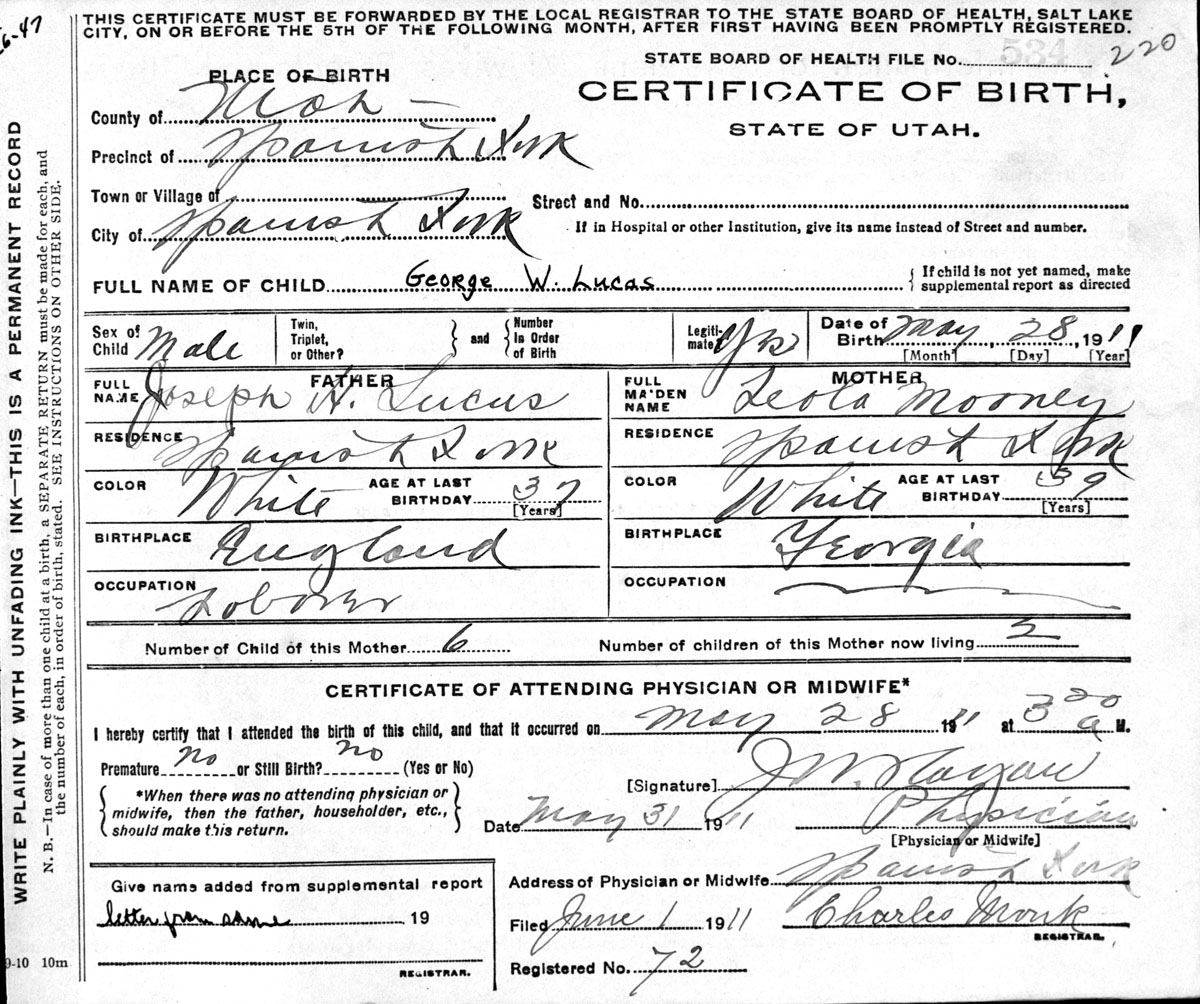 THIS CERTIFICATE MUST BE FORWARDED BY THE LOCAL REGISTRAR TO THE STATE BOARD OF HEALTH, SALT LAKE
CITY, ON OR BEFORE THE 5TH OF THE FOLLOWING MONTH, AFTER FIRST HAVING BEEN PROMPTLY REGISTERED.
6-47
STATE BOARD OF HEALTH FILE No. 534 220
PLACE OF BIRTH
CERTIFICATE OF BIRTH,
STATE OF UTAH.
County of Utah
Precinct of Spanish Fork
Town or Village of
Street and No.
City of Spanish Fork
If in Hospital or other Institution, give its name instead of Street and number.
FULL NAME OF CHILD George W. Lucas
{ If child is not yet named, make
supplemental report as directed
Sex of Child Male
Twin, Triplet, or Other? } and { Number In Order of Birth
Legiti-mate? Yes
Date of Birth May, 28, 1911
[Month] [Day] [Year]
FATHER
FULL NAME Joseph H. Lucus
RESIDENCE Spanish Fork
COLOR White AGE AT LAST BIRTHDAY 37
[Years]
BIRTHPLACE England
OCCUPATION Laborer
MOTHER
FULL MAIDEN NAME Leola Mooney
RESIDENCE Spanish Fork
COLOR White AGE AT LAST BIRTHDAY 39
[Years]
BIRTHPLACE Georgia
OCCUPATION
Number of Child of this Mother 6 Number of children of this Mother now living 5
CERTIFICATE OF ATTENDING PHYSICIAN OR MIDWIFE*
I hereby certify that I attended the birth of this child, and that it occurred on May 28 1911 at 3 20 a M.
Premature no or Still Birth? no (Yes or No)
[Signature]
{ *When there was no attending physician or
midwife, then the father, householder, etc.,
should make this return. }
Date May 31 1911 Physician
[Physician or Midwife]
Give name added from supplemental report
letter from same 19
REGISTRAR.
Address of Physician or Midwife Spanish Fork
Filed June 1 1911 Charles Monk
REGISTRAR.
Registered No. 72
9-10 10m
WRITE PLAINLY WITH UNFADING INK—THIS IS A PERMANENT RECORD
N. B.—In case of more than one child at a birth, a SEPARATE RETURN must be made for each, and
the number of each, in order of birth, stated. SEE INSTRUCTIONS ON OTHER SIDE.